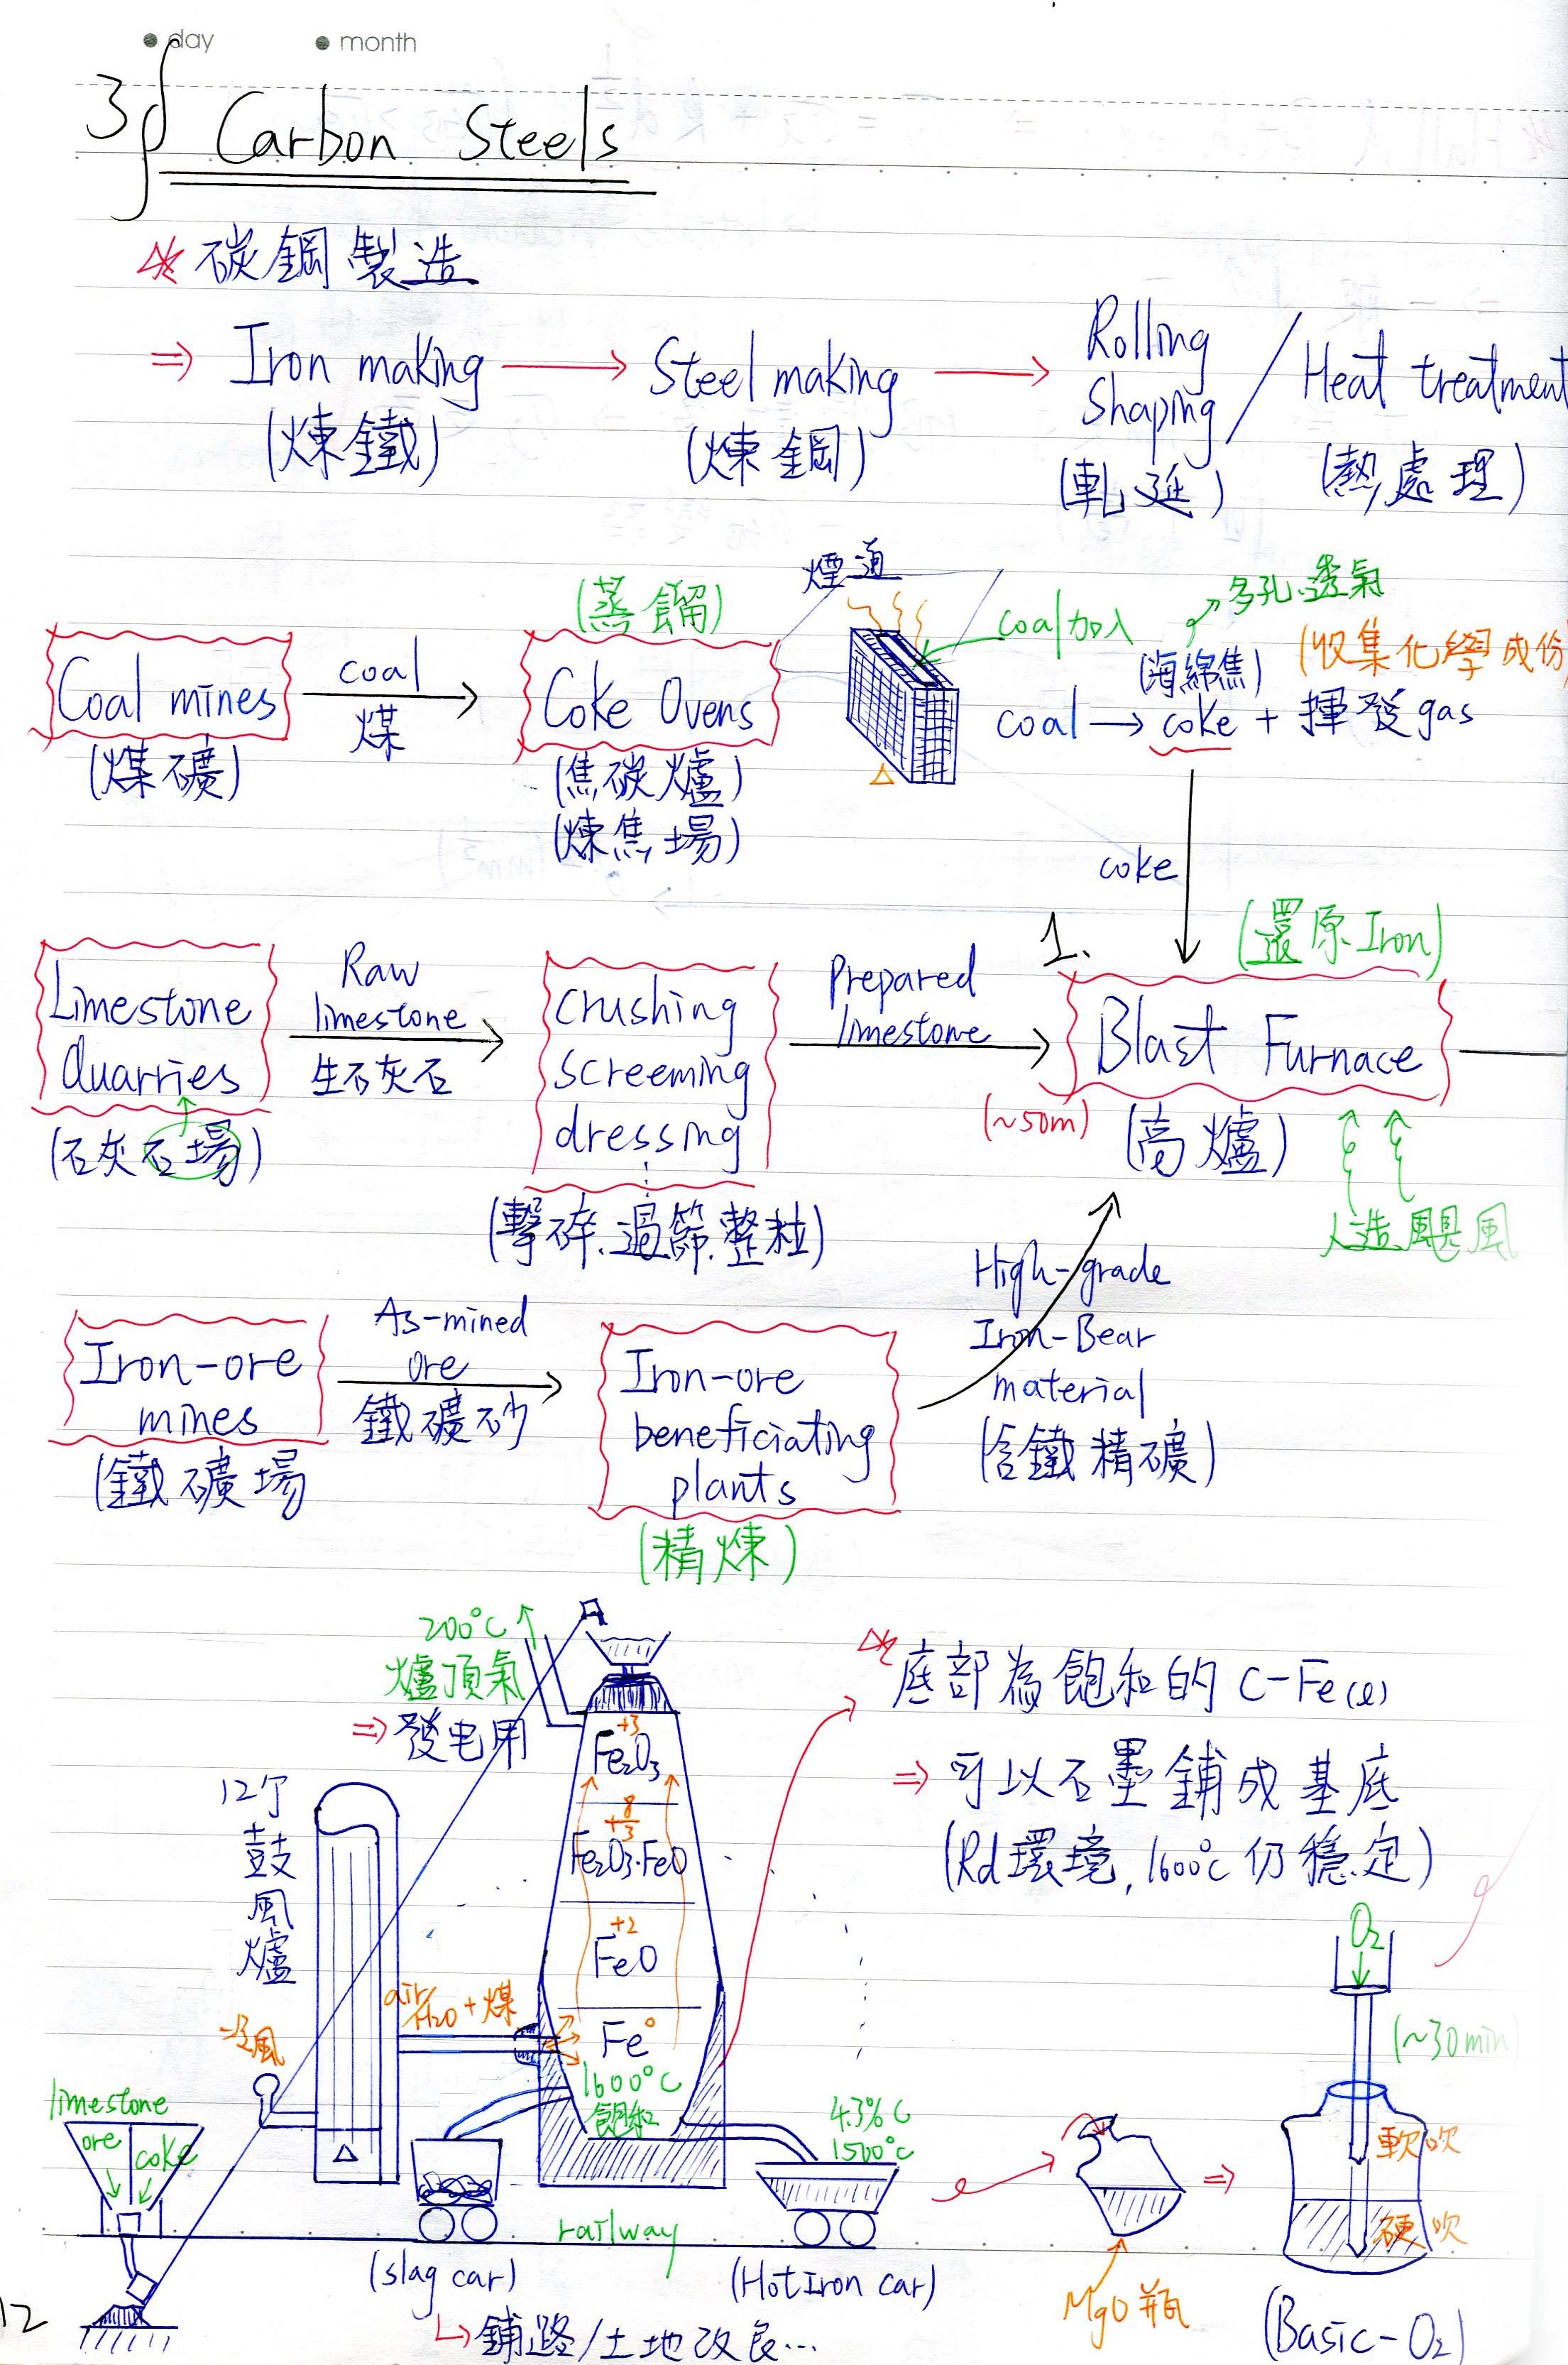 day month
3 Carbon Steels
碳鋼製造
⇒ Iron making → Steel making → Rolling Shaping / Heat treatment
(煉鐵) (煉鋼) (軋延) (熱處理)
(蒸餾) 煙道 coal加入 多孔透氣
Coal mines coal Coke Ovens (海綿焦) (收集化學成份)
煤 coal → coke + 揮發gas
(煤礦) (焦碳爐)
(煉焦場)
coke
1. (還原Iron)
Limestone Quarries Raw limestone Crushing screeming dressing Prepared limestone Blast Furnace
生石灰石
(石灰石場) (~50m) (高爐)
(擊碎.過篩.整粒) 人造颶風
Iron-ore mines As-mined ore Iron-ore beneficiating plants High-grade Iron-Bear material
鐵礦砂
(鐵礦場 (含鐵精礦)
(精煉)
200°C
爐頂氣
⇒ 發电用
底部為飽和的 C-Fe(l)
⇒ 可以石墨鋪成基底
(Rd環境, 1600°C仍穩定)
+3
Fe2O3
+8/3
Fe2O3·FeO
+2
FeO
Fe°
1600°C
飽和
12个鼓風爐
air/H2O + 煤
冷風
limestone
ore coke
4.3% C
1500°C
O2
(~30min)
軟吹
硬吹
railway
(slag car) (Hot Iron car) MgO瓶 (Basic-O2)
鋪路/土地改良...
12